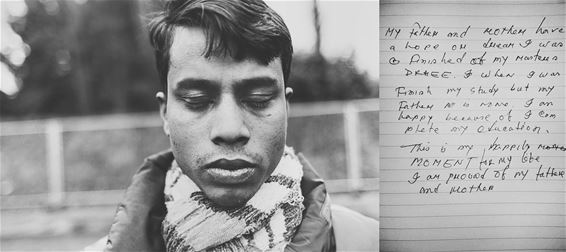 My father and mother have
a hope or dream I was
finished of my masters
DRGEE. I when I was
Finish my study but my
Father he is none. I am
happy because of I com
plete my education.
This is my happily
MOMENT for my life
I am pruowd of my father
and mother